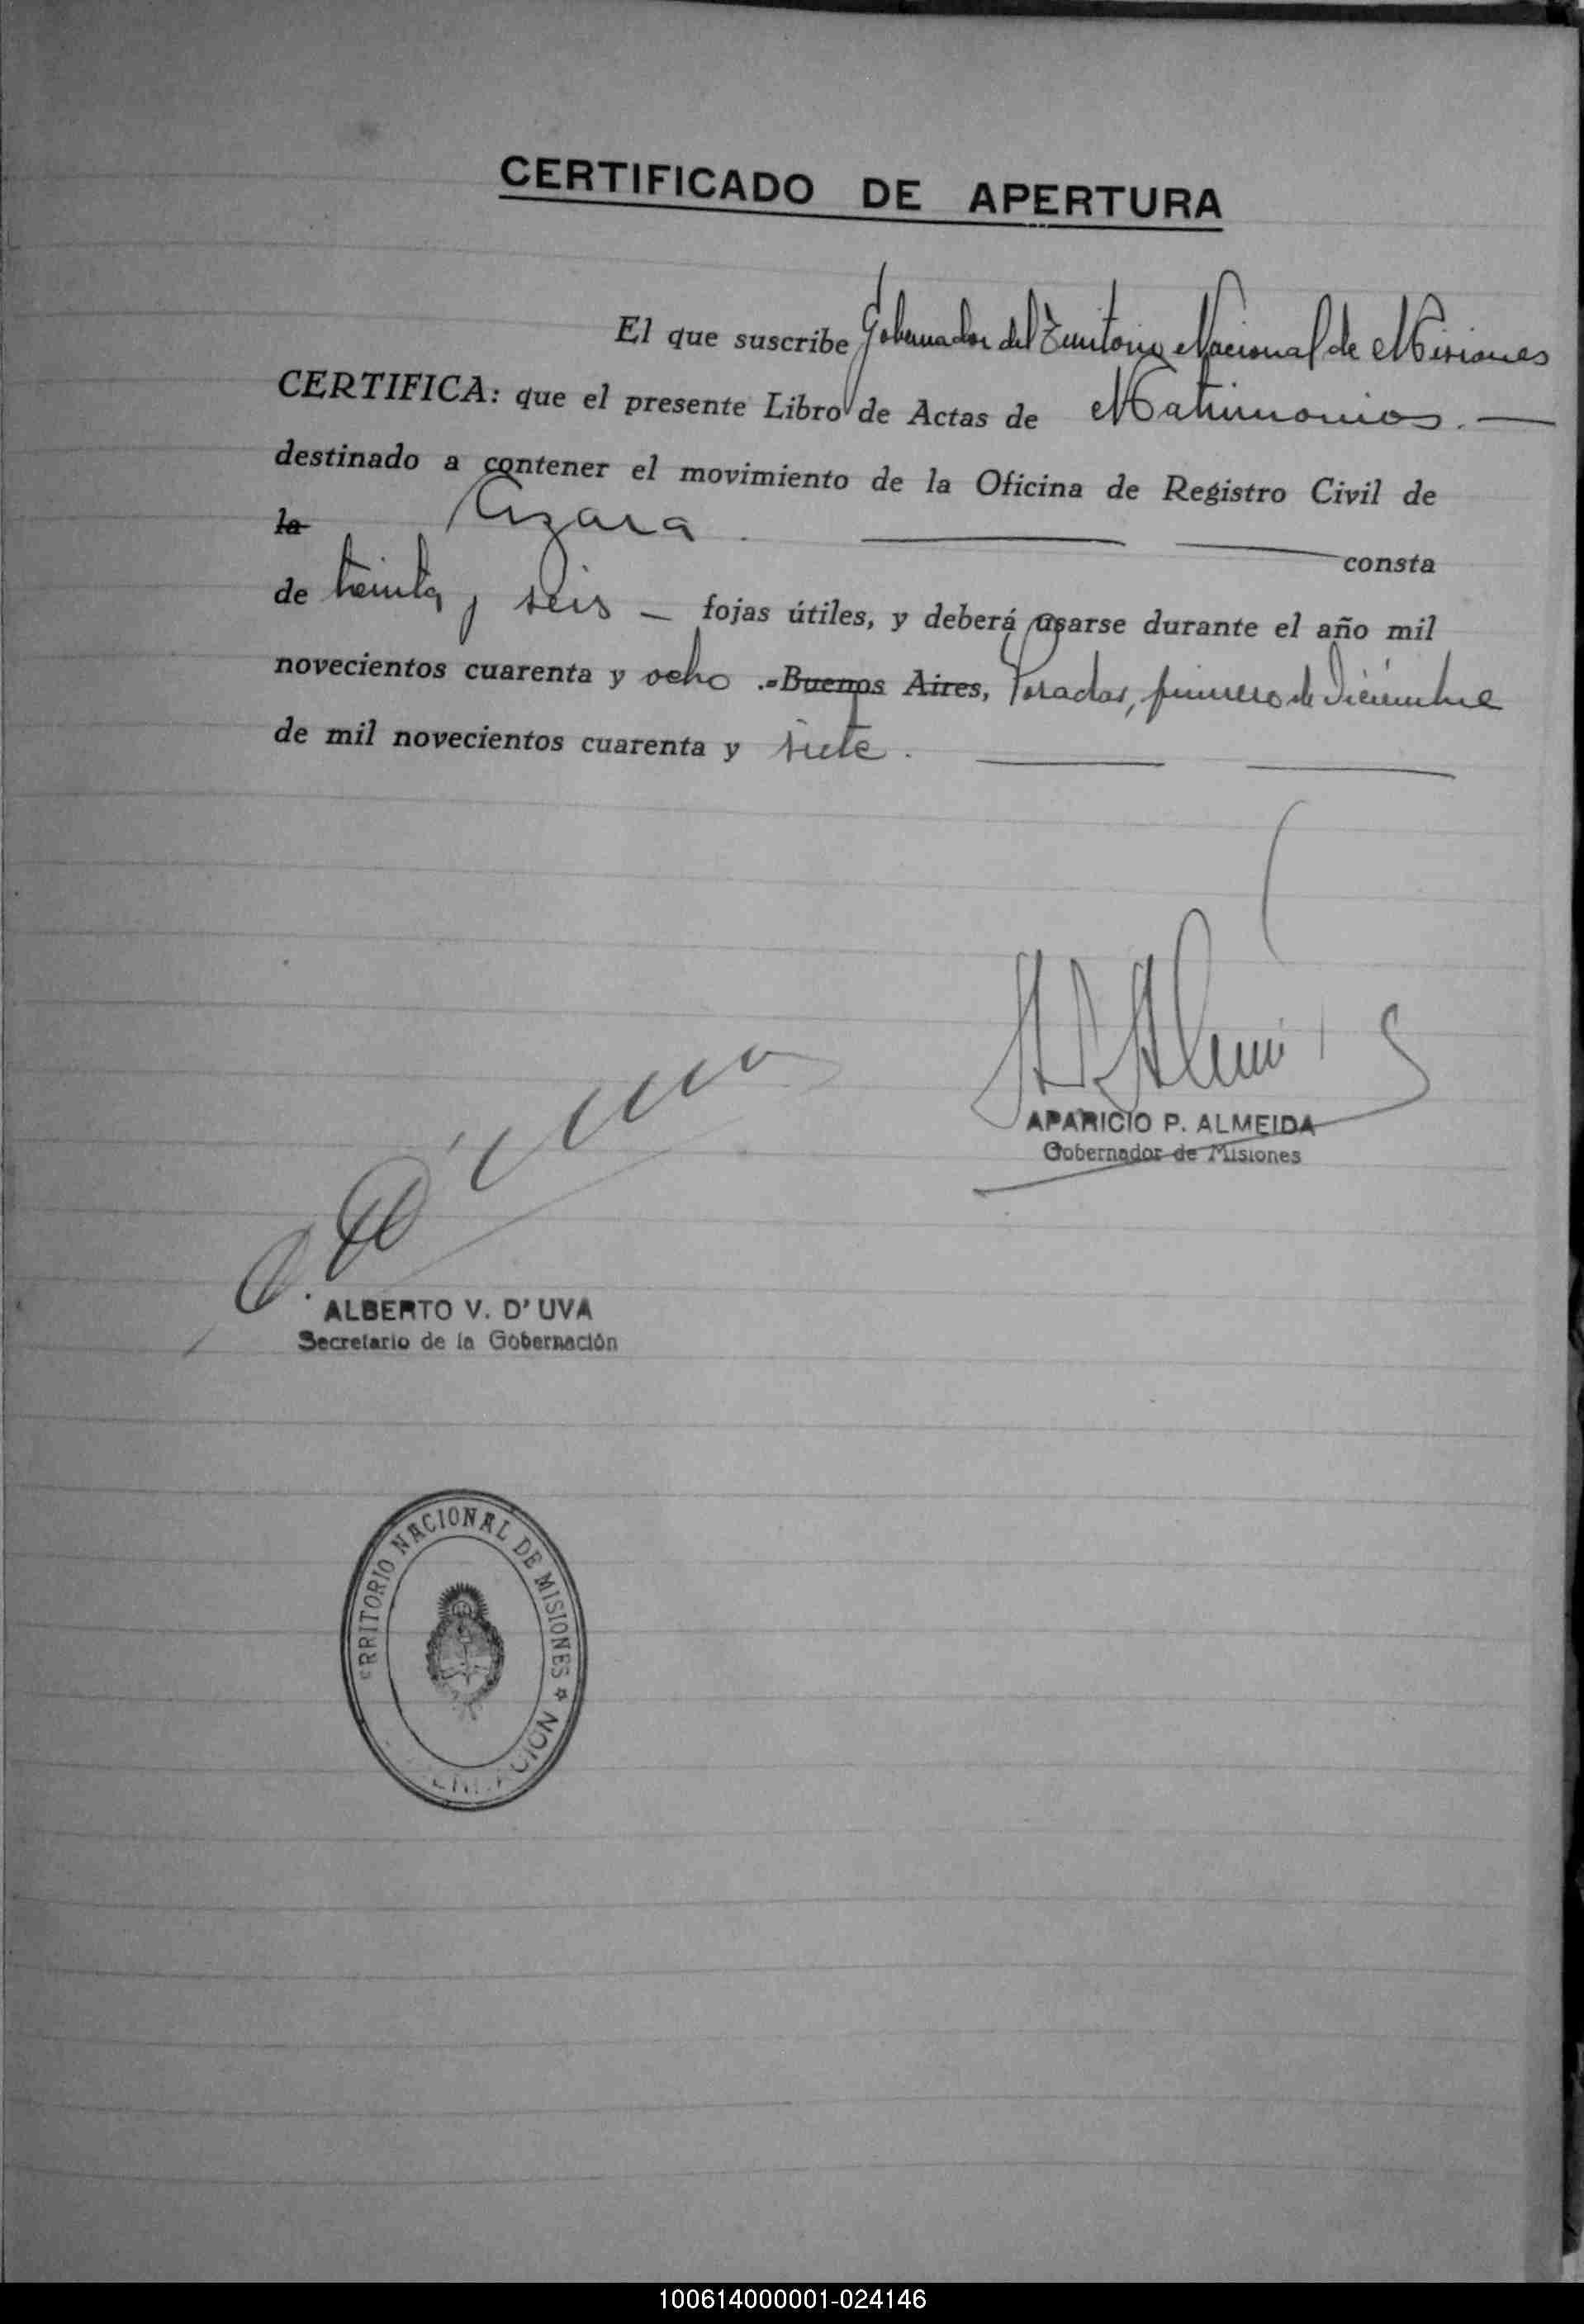 CERTIFICADO DE APERTURA
El que suscribe Gobernador del Territorio Nacional de Misiones
CERTIFICA: que el presente Libro de Actas de Matrimonios. —
destinado a contener el movimiento de la Oficina de Registro Civil de
la Azara. consta
de treinta y seis — fojas útiles, y deberá usarse durante el año mil
novecientos cuarenta y ocho .-Buenos Aires, Posadas, primero de Diciembre
de mil novecientos cuarenta y siete.
APARICIO P. ALMEIDA
Gobernador de Misiones
ALBERTO V. D'UVA
Secretario de la Gobernación
RRITORIO NACIONAL DE MISIONES
100614000001-024146